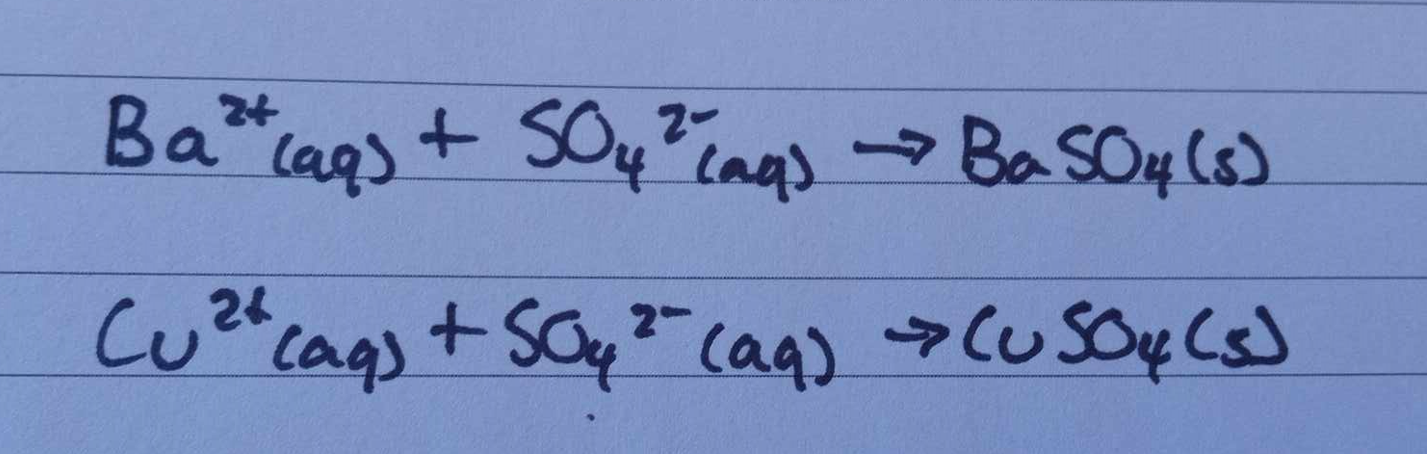 Ba²⁺(aq) + SO₄²⁻(aq) → BaSO₄(s)
Cu²⁺(aq) + SO₄²⁻(aq) → CuSO₄(s)